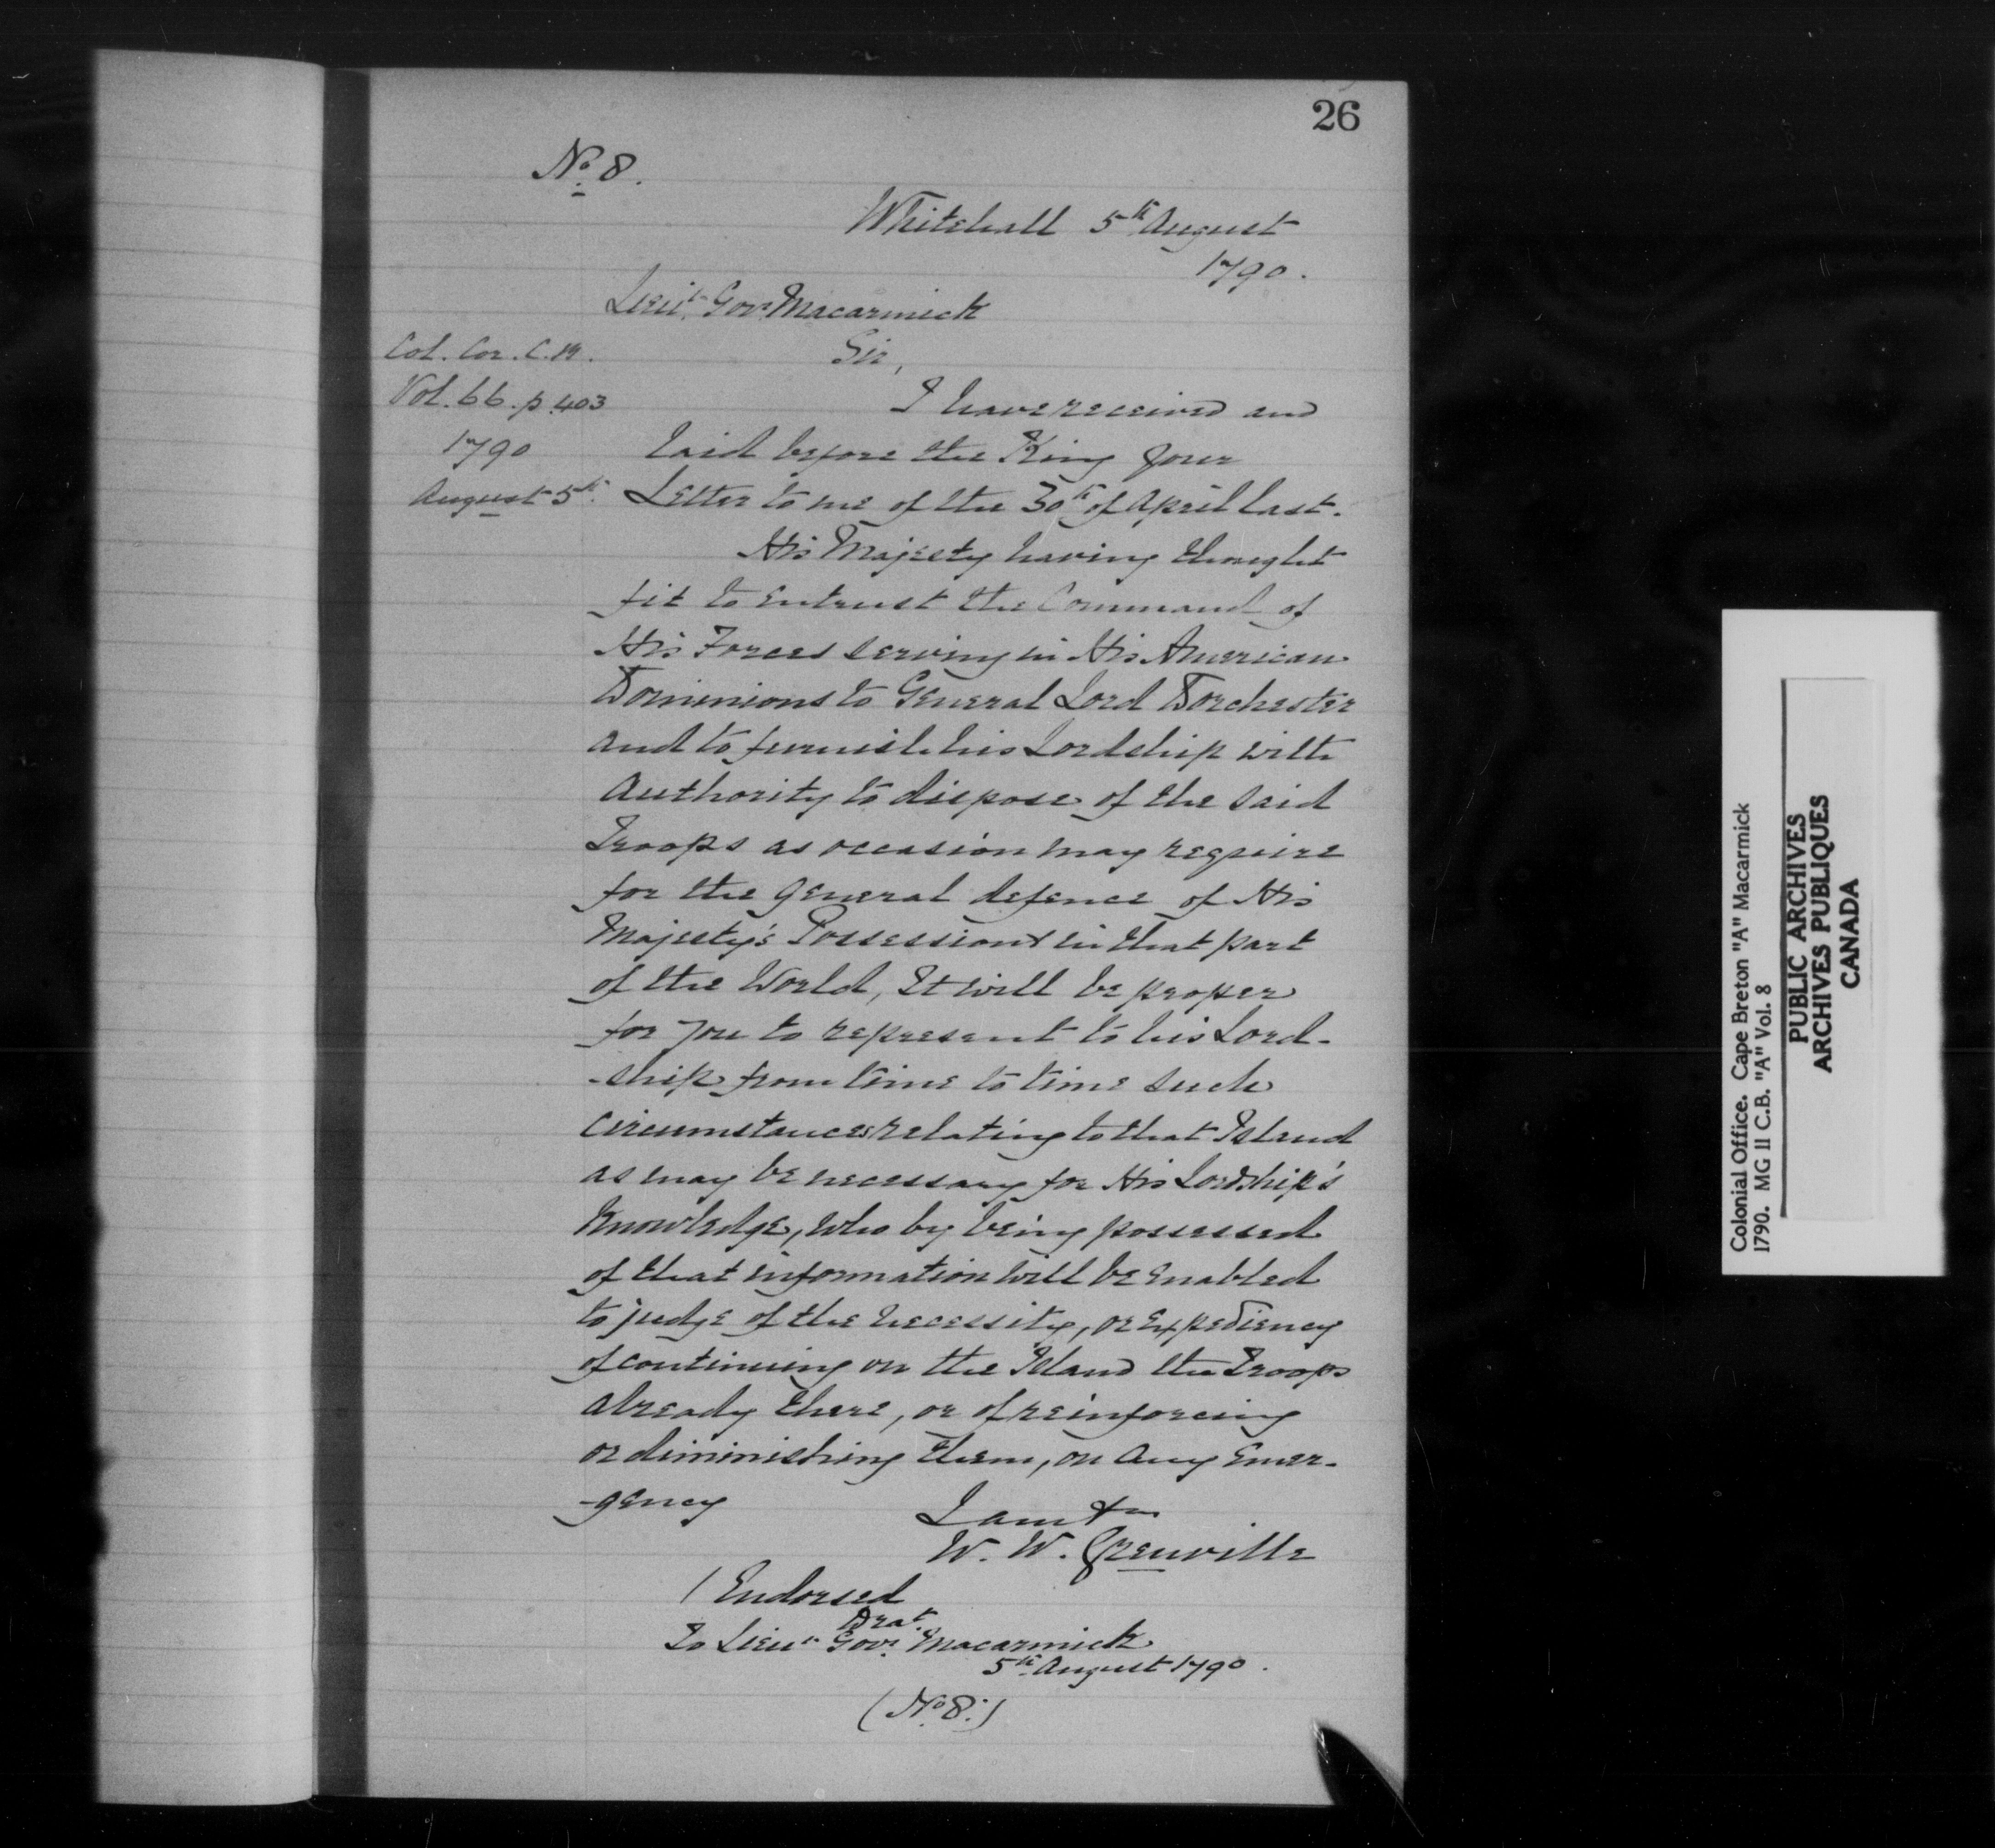 26
No. 8.
Whitehall 5th August
1790.
Lieut. Govr. Macarmick
Sir,
Col. Cor. C.B.
Vol. 66. p. 403
1790
August 5th.
I have received and
laid before the King your
Letter to me of the 30th of April last.
His Majesty having thought
fit to entrust the Command of
His Forces serving in His American
Dominions to General Lord Dorchester
and to furnish his Lordship with
Authority to dispose of the said
Troops as occasion may require
for the General defence of His
Majesty's Possessions in that part
of the World, It will be proper
for you to represent to his Lord-
-ship from time to time such
Circumstances relating to that Island
as may be necessary for His Lordship's
Knowledge, who by being possessed
of that information will be enabled
to judge of the necessity, or Expediency
of continuing on the Island the Troops
already there, or of reinforcing
or diminishing them, on any Emer-
-gency
I am &c
W. W. Grenville
/ Endorsed
Drat.
To Lieut. Govr. Macarmick
5th August 1790.
(No. 8.)
Colonial Office. Cape Breton "A" Macarmick
1790. MG 11 C.B. "A" Vol. 8
PUBLIC ARCHIVES
ARCHIVES PUBLIQUES
CANADA